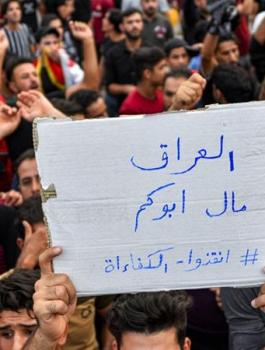 العراق
مال ابوكم
# انقذوا-الكفاءاة